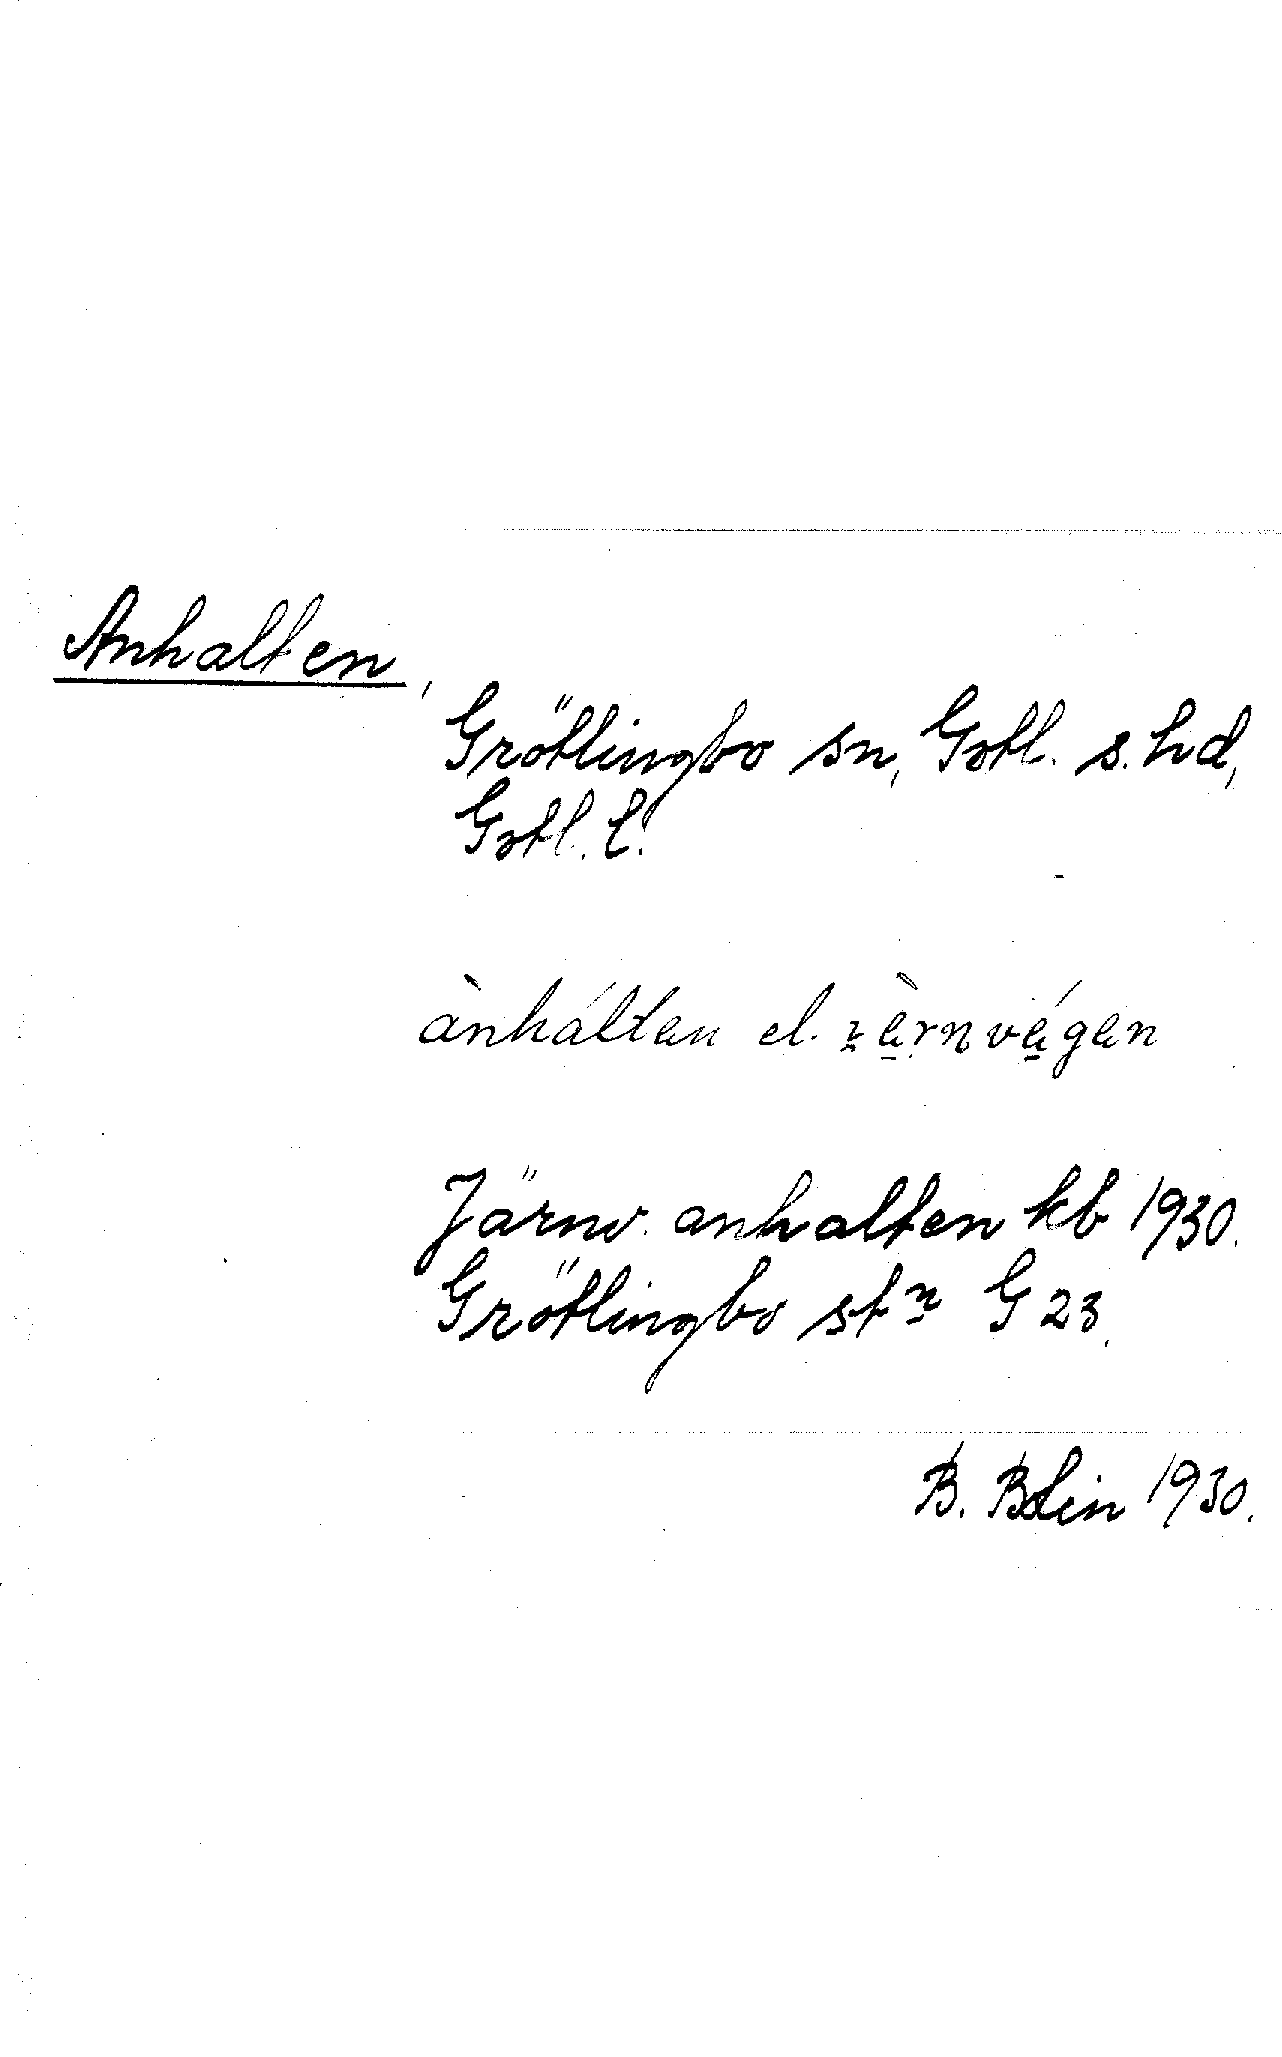 Anhalten,
Grötlingbo sn, Gotl. s. hd,
Gotl. l.
ànhálten el. jä̀rnvä́gen
Järnv. anhalten kb 1930.
Grötlingbo stn G 23.
B. Bolin 1930.